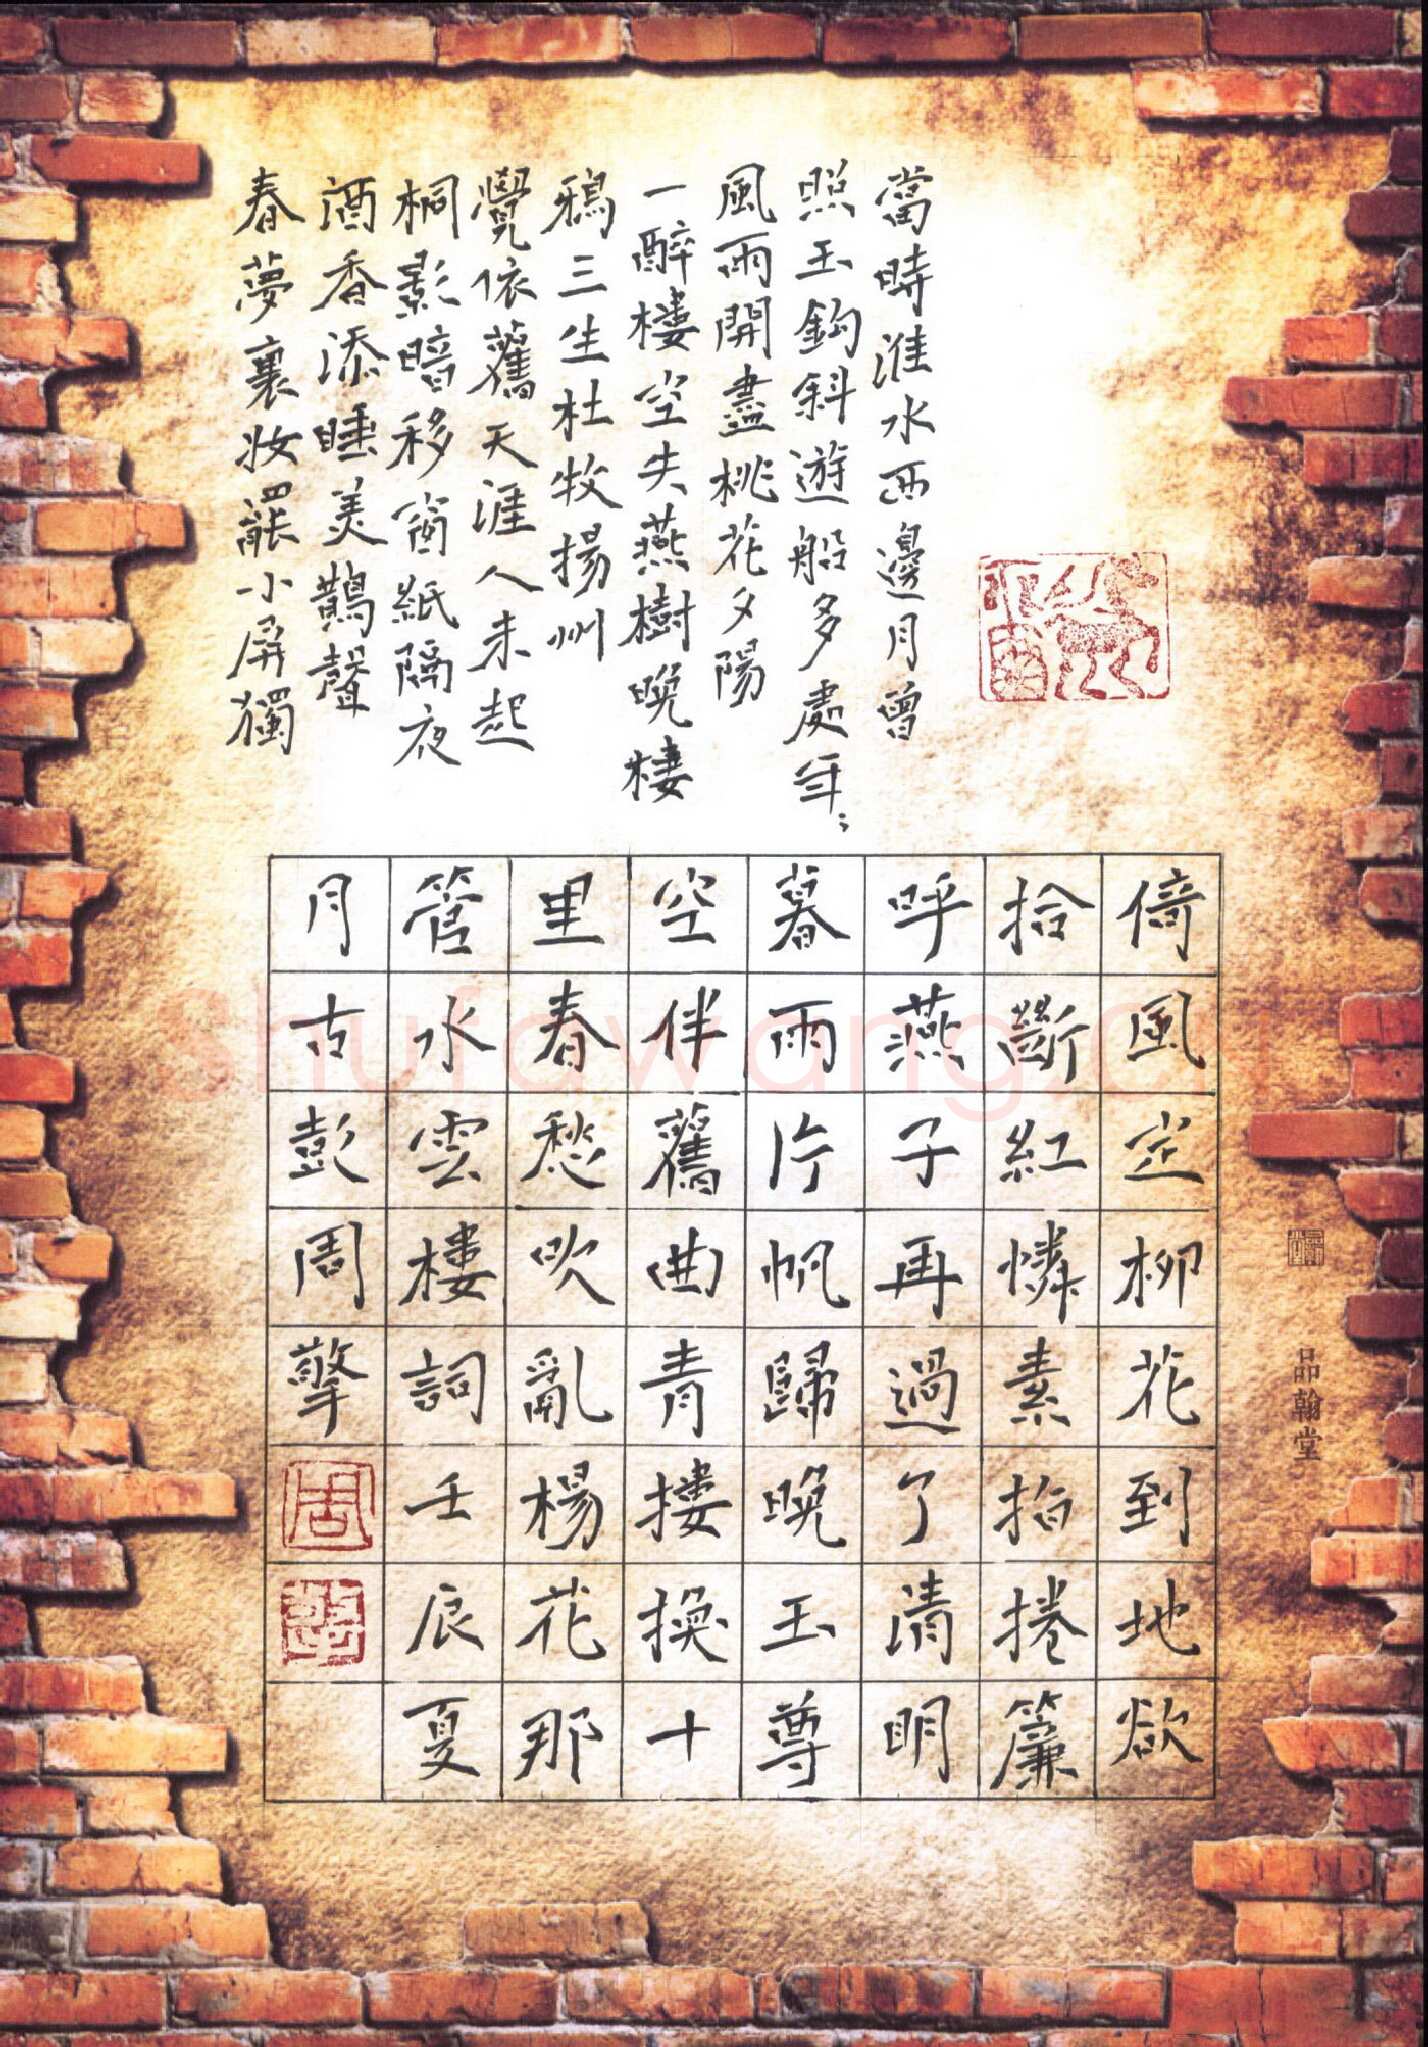 當時淮水西邊月曾
照玉鈎斜遊船多處年〻
風雨開盡桃花夕陽
一醉樓空失燕樹晚棲
鴉三生杜牧揚州
覺依舊天涯人未起
桐影暗移窗紙隔夜
酒香添睡美鵲聲
春夢裏妝罷小屏獨
倚風定柳花到地欲
拾斷紅憐素指捲簾
呼燕子再過了清明
暮雨片帆歸晚玉尊
空伴舊曲青樓換十
里春愁吹亂楊花那
管水雲樓詞壬辰夏
月古彭周擎
周
品翰堂
shufawang.cn